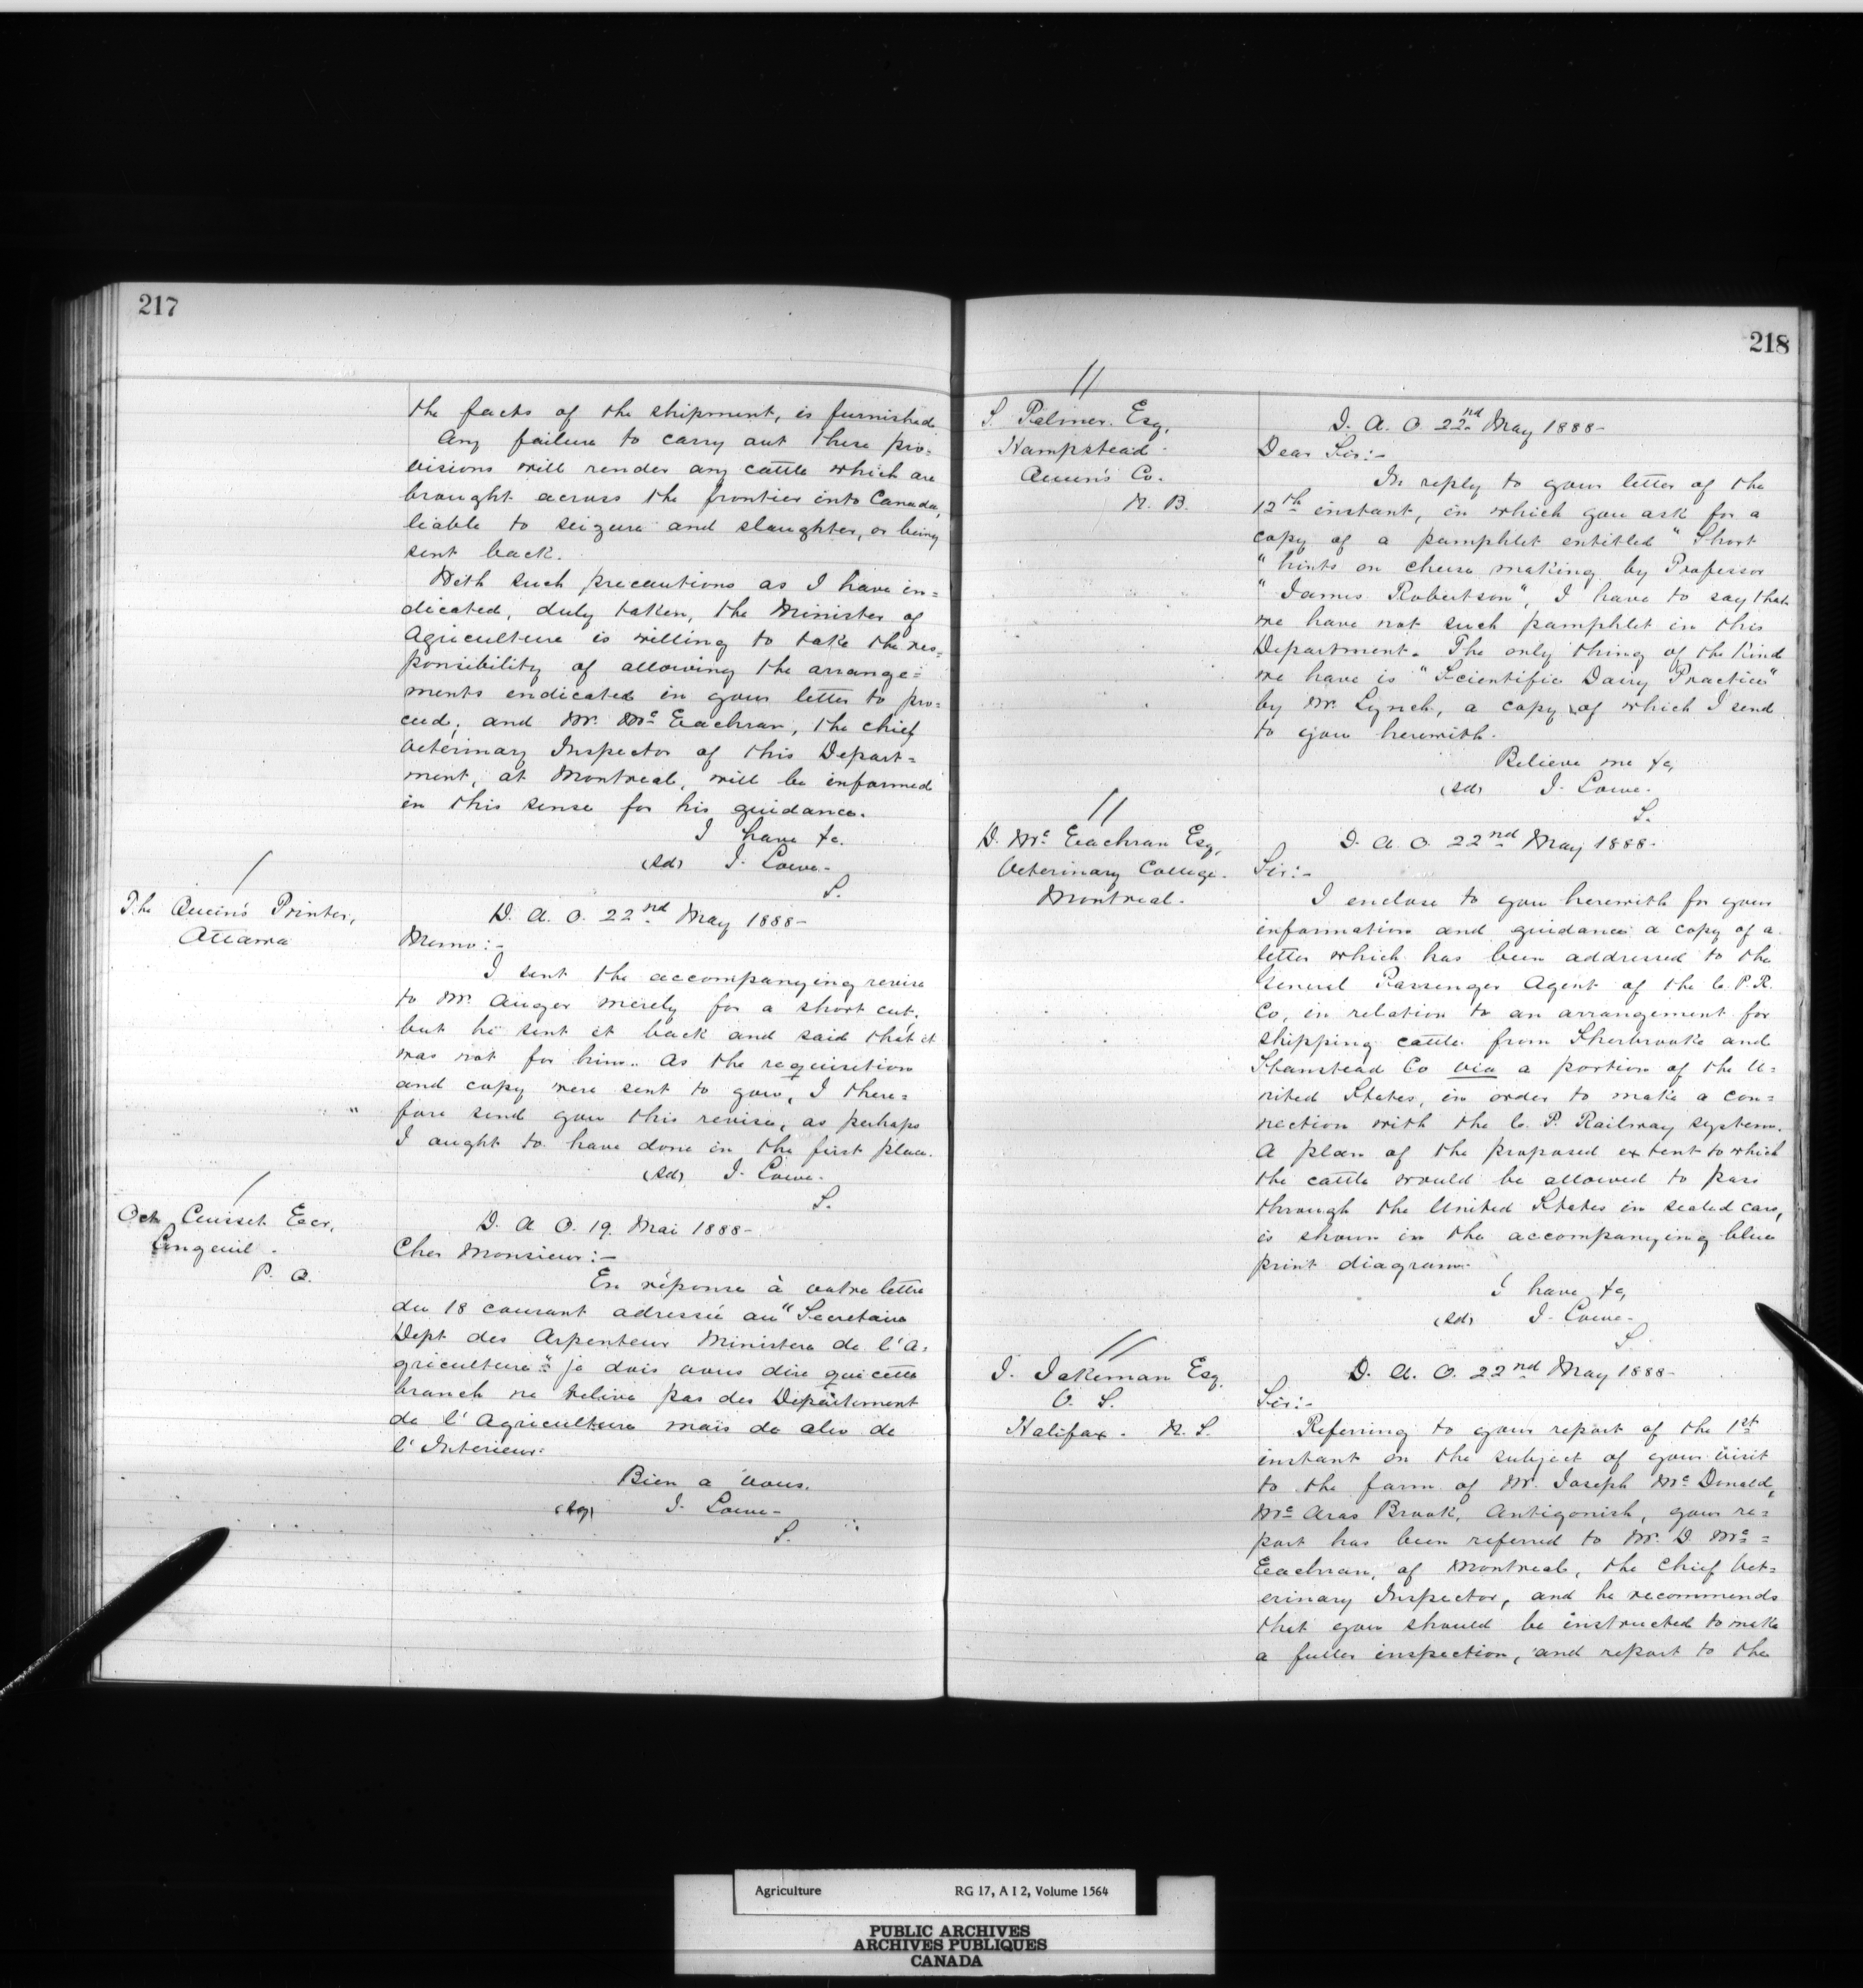 217
the facts of the shipment, is furnished
Any failure to carry out these pro=
visions will render any cattle which are
brought across the frontier into Canada,
liable to seizure and slaughter, or being
sent back.
With such precautions as I have in=
dicated, duly taken, the Minister of
Agriculture is willing to take the res=
ponsibility of allowing the arrange=
ments indicated in your letter to pro=
ceed; and Mr. Mc Eachran, the chief
Veterinary Inspector of this Depart=
ment, at Montreal, will be informed
in this sense for his guidance.
I have &c.
(sd) J. Lowe.
S.
/
The Queen's Printer,
Ottawa
D. A. O. 22nd May 1888-
Memo:-
I sent the accompanying revise
to Mr. Auger merely for a short cut,
but he sent it back and said that it
was not for him. As the requisition
and copy were sent to you, I there=
fore send you this revise, as perhaps
I ought to have done in the first place.
(sd) J. Lowe.
S.
/
Oct. Cuisset Ecr.
Longeuil.
P. Q.
D. A. O. 19. Mai 1888-
Cher Monsieur:-
En réponse à votre lettre
du 18 courant adressée au "Secretaire
Dept des Arpenteur Ministere de l'A=
griculture" je dois vous dire que cette
branch ne relive pas des Department
de l'Agriculture mais de
l'Interieur.
Bien a vous.
J. Lowe-
S.
218
//
S. Palmer Esq.
Hampstead
Queen's Co.
N. B.
D. A. O. 22nd May 1888-
Dear Sir:-
In reply to your letter of the
12th instant, in which you ask for a
copy of a pamphlet entitled "Short
"hints on cheese making by Professor
"James Robertson", I have to say that
we have not such pamphlet in this
Department. The only thing of the kind
we have is "Scientific Dairy Practice"
by Mr. Lynch, a copy of which I send
to you herewith.
Believe me &c,
(sd) J. Lowe.
S.
//
D. Mc Eachran Esq,
Veterinary College.
Montreal.
D. A. O. 22nd May 1888-
Sir:-
I enclose to you herewith for your
information and guidance a copy of a
letter which has been addressed to the
General Passenger Agent of the C. P. R.
Co, in relation to an arrangement for
shipping cattle from Sherbrooke and
Stanstead Co via a portion of the U=
nited States, in order to make a con=
nection with the C. P. Railway system.
A plan of the proposed extent to which
the cattle would be allowed to pass
through the United States in sealed cars,
is shown in the accompanying blue
print diagram.
I have &c,
(sd) J. Lowe-
S.
//
J. Jakeman Esq.
V. S.
Halifax. N. S.
D. A. O. 22nd May 1888-
Sir:-
Referring to your report of the 1st
instant on the subject of your visit
to the farm of Mr. Joseph Mc Donald,
Mc Aras Brook, Antigonish, your re=
port has been referred to Mr. D Mc=
Eachran, of Montreal, the Chief Vet=
erinary Inspector, and he recommends
that you should be instructed to make
a fuller inspection, and report to the
Agriculture RG 17, A I 2, Volume 1564
PUBLIC ARCHIVES
ARCHIVES PUBLIQUES
CANADA